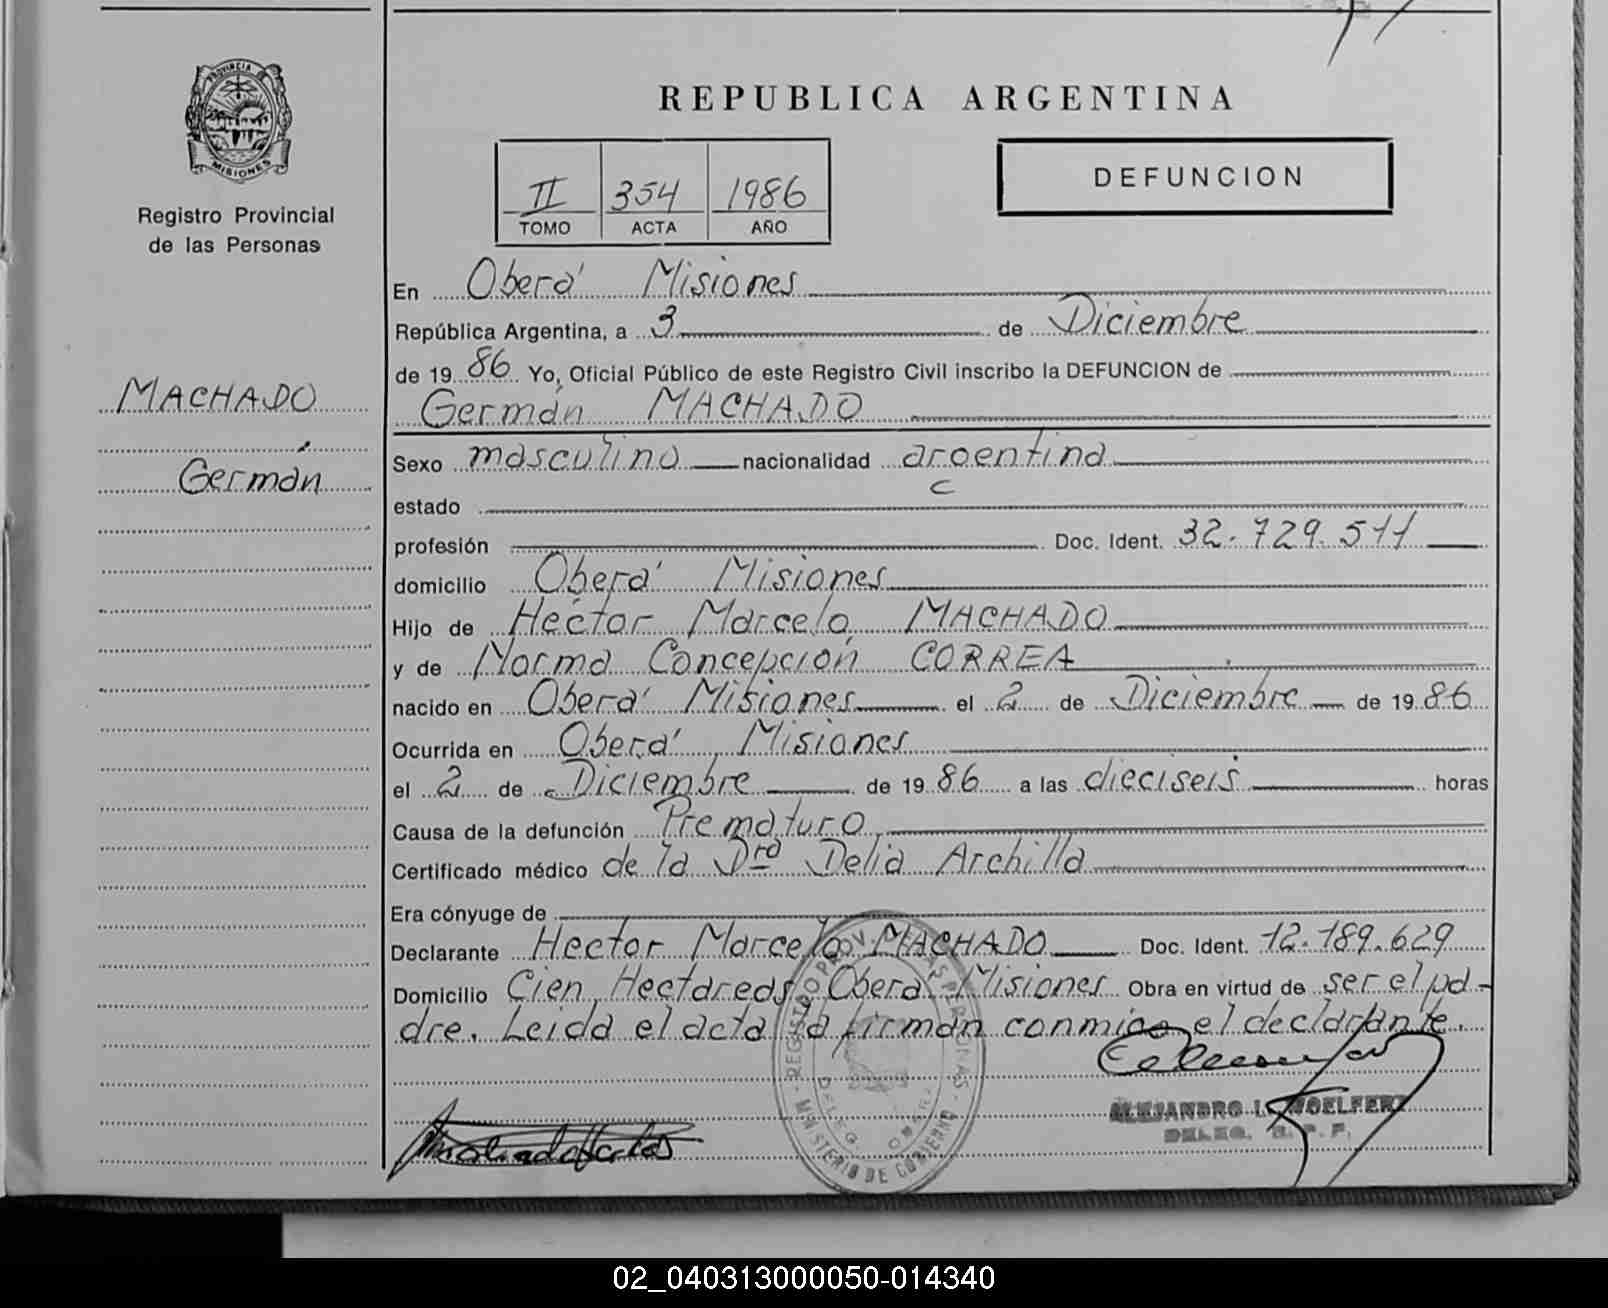 PROVINCIA DE
MISIONES
Registro Provincial
de las Personas
MACHADO
Germán
REPUBLICA ARGENTINA
II 354 1986
TOMO ACTA AÑO
DEFUNCION
En Oberá Misiones
República Argentina, a 3 de Diciembre
de 19 86 Yo, Oficial Público de este Registro Civil inscribo la DEFUNCION de
Germán MACHADO
Sexo masculino nacionalidad argentina
estado
profesión Doc. Ident. 32.729.511
domicilio Oberá Misiones
Hijo de Héctor Marcelo MACHADO
y de Norma Concepción CORREA
nacido en Oberá Misiones el 2 de Diciembre de 19 86
Ocurrida en Oberá Misiones
el 2 de Diciembre de 19 86 a las dieciseis horas
Causa de la defunción Prematuro
Certificado médico de la Dra Delia Archilla
Era cónyuge de
Declarante Hector Marcelo MACHADO Doc. Ident. 12.189.629
Domicilio Cien Hectareas, Oberá Misiones Obra en virtud de ser el pa-
dre. Leida el acta la firman conmigo el declarante.
REGISTRO PROV. DE LAS PERSONAS
MINISTERIO DE GOBIERNO
DELEG. OBERA
ALEJANDRO L. WOELFERT
DELEG. R. P. P.
02_040313000050-014340